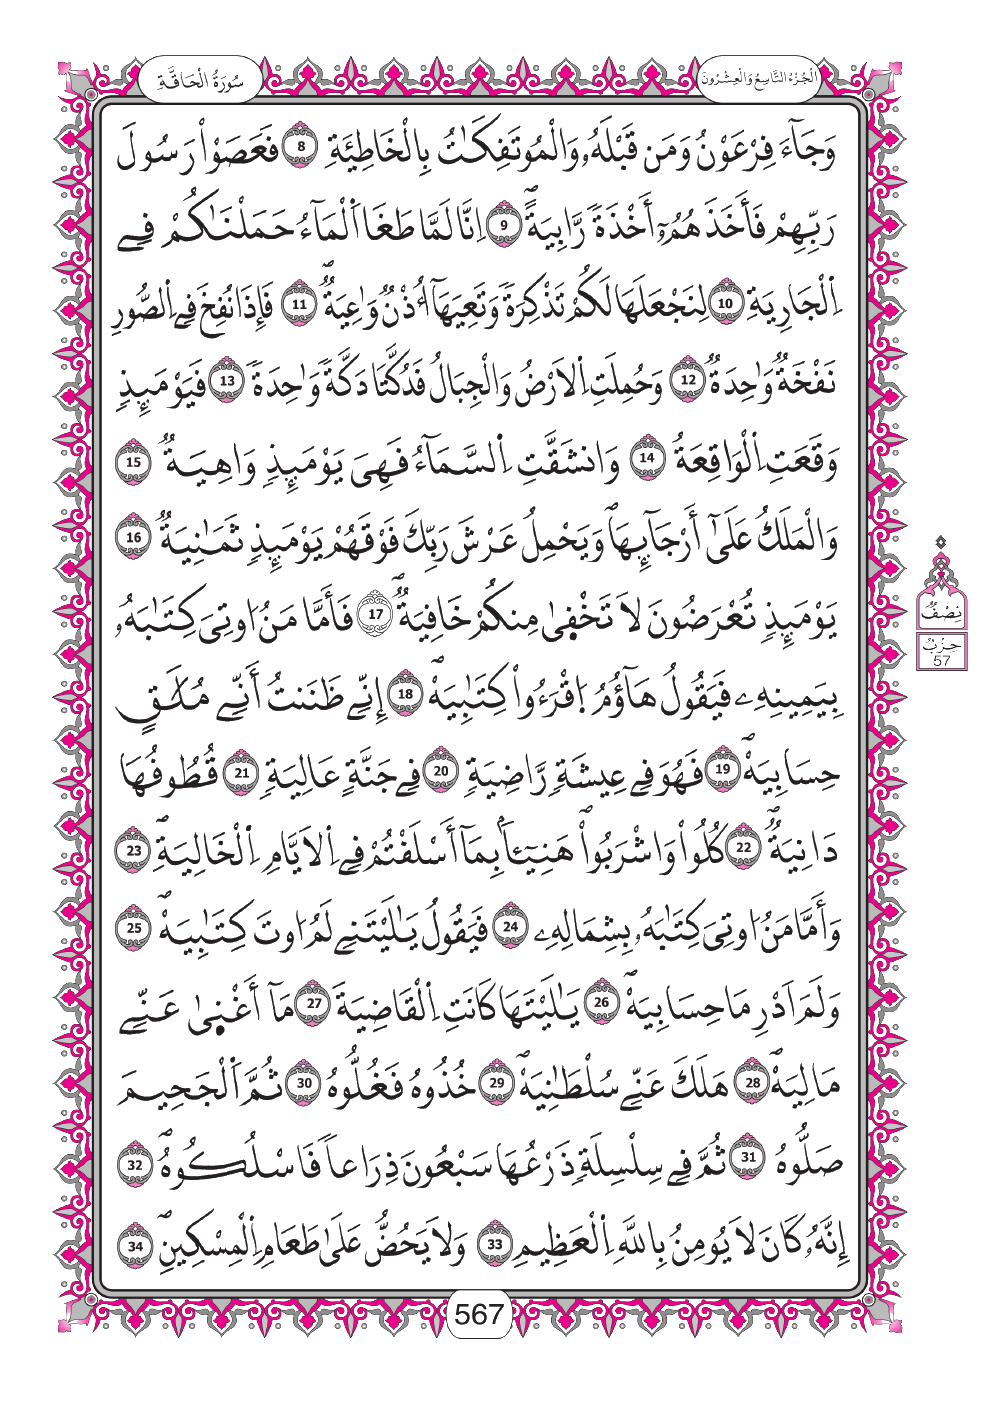 سُورَةُ الْحَاقَّةِ
الْجُزْءُ التَّاسِعُ وَالْعِشْرُونَ
وَجَآءَ فِرْعَوْنُ وَمَن قَبْلَهُۥ وَالْمُوتَفِكَٰتُ بِالْخَاطِئَةِ 8 فَعَصَوْاْ رَسُولَ
رَبِّهِمْ فَأَخَذَهُمُۥٓ أَخْذَةٗ رَّابِيَةًۖ 9 اِنَّا لَمَّا طَغَا اَ۬لْمَآءُ حَمَلْنَٰكُمْ فِے
اِ۬لْجَارِيَةِ 10 لِنَجْعَلَهَا لَكُمْ تَذْكِرَةٗ وَتَعِيَهَآ أُذْنٞ وَٰعِيَةٞۖ 11 فَإِذَا نُفِخَ فِے اِ۬لصُّورِ
نَفْخَةٞ وَٰحِدَةٞ 12 وَحُمِلَتِ اِ۬لَارْضُ وَالْجِبَالُ فَدُكَّتَا دَكَّةٗ وَٰحِدَةٗ 13 فَيَوْمَئِذٖ
وَقَعَتِ اِ۬لْوَاقِعَةُ 14 وَانشَقَّتِ اِ۬لسَّمَآءُ فَهِيَ يَوْمَئِذٖ وَاهِيَةٞ 15
وَالْمَلَكُ عَلَىٰٓ أَرْجَآئِهَاۖ وَيَحْمِلُ عَرْشَ رَبِّكَ فَوْقَهُمْ يَوْمَئِذٖ ثَمَٰنِيَةٞ 16
يَوْمَئِذٖ تُعْرَضُونَ لَا تَخْفۭيٰ مِنكُمْ خَافِيَةٞۖ 17 فَأَمَّا مَنُ ا۟وتِيَ كِتَٰبَهُۥ
بِيَمِينِهِۦ فَيَقُولُ هَآؤُمُ اُ۪قْرَءُواْ كِتَٰبِيَهْۖ 18 إِنِّے ظَنَنتُ أَنِّے مُلَٰقٍ
حِسَابِيَهْۖ 19 فَهُوَ فِے عِيشَةٖ رَّاضِيَةٖ 20 فِے جَنَّةٍ عَالِيَةٖ 21 قُطُوفُهَا
دَانِيَةٞۖ 22 كُلُواْ وَاشْرَبُواْ هَنِيٓـٔاَۢ بِمَآ أَسْلَفْتُمْ فِے اِ۬لَايَّامِ اِ۬لْخَالِيَةِۖ 23
وَأَمَّا مَنُ ا۟وتِيَ كِتَٰبَهُۥ بِشِمَالِهِۦ 24 فَيَقُولُ يَٰلَيْتَنِے لَمُ ا۟وتَ كِتَٰبِيَهْۖ 25
وَلَمَ اَدْرِ مَا حِسَابِيَهْۖ 26 يَٰلَيْتَهَا كَانَتِ اِ۬لْقَاضِيَةَ 27 مَآ أَغْنۭيٰ عَنِّے
مَالِيَهْۖ 28 هَلَكَ عَنِّے سُلْطَٰنِيَهْۖ 29 خُذُوهُ فَغُلُّوهُ 30 ثُمَّ اَ۬لْجَحِيمَ
صَلُّوهُ 31 ثُمَّ فِے سِلْسِلَةٖ ذَرْعُهَا سَبْعُونَ ذِرَاعاٗ فَاسْلُكُوهُۖ 32
إِنَّهُۥ كَانَ لَا يُومِنُ بِاللَّهِ اِ۬لْعَظِيمِ 33 وَلَا يَحُضُّ عَلَىٰ طَعَامِ اِ۬لْمِسْكِينِۖ 34
نِصْفُ
حِزْبُ
57
567